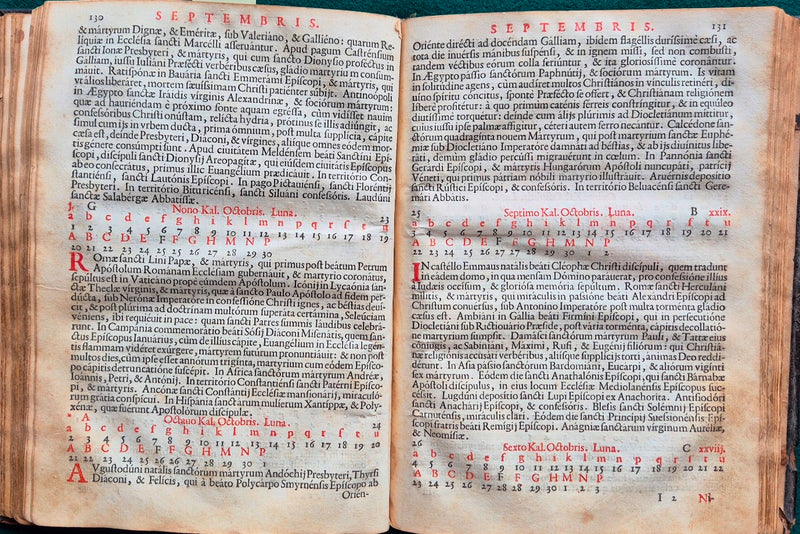 130
SEPTEMBRIS.
& mártyrum Dignæ, & Eméritæ, sub Valeriáno, & Galliéno: quarum Re-
líquiæ in Ecclésia sancti Marcélli asseruántur. Apud pagum Castrénsium
sancti Ionæ Presbyteri, & mártyris, qui cum sancto Dionysio proféctus in
Galliam, iussu Iuliáni Præfécti vérberibus cæsus, gládio martyrium consum-
mauit. Ratisponæ in Bauária sancti Emmerámi Episcopi, & mártyris, qui
vt álios liberáret, mortem sæuíssimam Christi patiénter súbijt. Antinoópoli
in Ægypto sanctæ Iraidis virginis Alexandrínæ, & sociórum mártyrum:
quæ ad hauriéndam è próximo fonte aquam egréssa, cùm vidísset nauim
confessóribus Christi onústam, relícta hydria, prótinus se illis adiúngit, ac
simul cum ijs in vrbem ducta, prima ómnium, post multa supplícia, cápite
cæsa est, deinde Presbyteri, Diáconi, & vírgines, aliíque omnes eódem mor-
tis génere consúmpti sunt. Apud ciuitátem Meldénsem beáti Sanctíni Epí-
scopi, discípuli sancti Dionysij Areopagítæ, qui eiúsdem ciuitátis Episcopus
ab eo consecrátus, primus illic Euangélium prædicáuit. In território Con-
stantiénsi, sancti Lautónis Episcopi. In pago Pictauiénsi, sancti Floréntij
Presbyteri. In território Bitúricénsi, sancti Siluáni confessóris. Laudúni
sanctæ Salabérgæ Abbatíssæ.
G Nono Kal. Octobris. Luna. 23
a b c d e f g h i k l m n p q r s t u
1 2 3 4 5 6 7 8 9 10 11 12 13 14 15 16 17 18 19
A B C D E F F G H M N P
20 21 22 23 24 25 26 27 28 29 30
ROmæ sancti Lini Papæ, & mártyris, qui primus post beátum Petrum
Apóstolum Románam Ecclésiam gubernáuit, & martyrio coronátus,
sepúltus est in Vaticáno prope eúmdem Apóstolum. Icónij in Lycaónia san-
ctæ Theclæ vírginis, & mártyris, quæ à sancto Paulo Apóstolo ad fidem per-
dúcta, sub Neróne Imperatóre in confessióne Christi ignes, ac béstias deui-
cit, & post plúrima ad doctrínam multórum superáta certámina, Seleúciam
véniens, ibi requiéuit in pace: quam sancti Patres summis láudibus celebrá-
runt. In Campánia commemorátio beáti Sósij Diáconi Misenátis, quem san-
ctus Episcopus Ianuárius, cùm de illíus cápite, Euangélium in Ecclésia legén-
tis flammam vidéret exúrgere, mártyrem futúrum pronuntiáuit: & non post
multos dies, cùm ipse esset annórum trigínta, martyrium cum eódem Epísco-
po cápitis detruncatióne suscépit. In Africa sanctórum mártyrum Andréæ,
Ioánnis, Petri, & Antónij. In território Constantiénsi sancti Patérni Epísco-
pi, & mártyris. Ancónæ sancti Constántij Ecclésiæ mansionárij, miraculó-
rum grátia conspícui. In Hispánia sanctárum mulíerum Xantíppæ, & Poly-
xénæ, quæ fuérunt Apostolórum discípulæ.
A Octauo Kal. Octobris. Luna. 24
a b c d e f g h i k l m n p q r s t u
2 3 4 5 6 7 8 9 10 11 12 13 14 15 16 17 18 19 20
A B C D E F F G H M N P
21 22 23 24 25 26 27 28 29 30
AVgustodúni natális sanctórum mártyrum Andóchij Presbyteri, Thyrsi
Diáconi, & Felícis, qui à beáto Polycárpo Smyrnénsis Episcopo ab
Orién-
SEPTEMBRIS.
131
Oriénte dirécti ad docéndam Galliam, ibidem flagéllis duríssimè cæsi, ac
tota die inuérsis mánibus suspénsi, & in ignem missi, sed non combústi,
tandem véctibus eórum colla feriúntur, & ita gloriosíssimè coronántur.
In Ægypto pássio sanctórum Paphnútij, & sociórum mártyrum. Is vitam
in solitúdine agens, cùm audíret multos Christiános in vínculis retinéri, di-
uíno spíritu cóncitus, sponte Præfécto se óffert, & Christiánam religiónem
líberè profitétur: à quo primùm caténis férreis constríngitur, & in equúleo
diutíssimè torquétur: deinde cum álijs plúrimis ad Diocletiánum míttitur,
cuius iussu ipse palmæ affígitur, cétera autem ferro necántur. Calcédone san-
ctórum quadragínta nouem Mártyrum, qui post martyrium sanctæ Euphé-
miæ sub Diocletiáno Imperatóre damnáti ad béstias, & ab ijs diuínitus libe-
ráti, demùm gládio percússi migrauérunt in cælum. In Pannónia sancti
Gerárdi Episcopi, & mártyris Hungarórum Apóstoli nuncupáti, patrícij
Véneti, qui primus pátriam nóbili martyrio illustráuit. Aruérnis depositio
sancti Rústici Episcopi, & confessóris. In território Beluacénsi sancti Gere-
mári Abbatis.
25 Septimo Kal. Octobris. Luna. B xxix.
a b c d e f g h i k l m n p q r s t u
3 4 5 6 7 8 9 10 11 12 13 14 15 16 17 18 19 20 21
A B C D E F F G H M N P
22 23 24 25 26 27 28 29 30 1 2
IN castéllo Emmaus natális beáti Cléophæ Christi discípuli, quem tradunt
in eádem domo, in qua mensam Dómino paráuerat, pro confessióne illíus
à Iudæis occísum, & gloriósa memória sepúltum. Romæ sancti Herculáni
mílitis, & mártyris, qui miráculis in passióne beáti Alexándri Episcopi ad
Christum conuérsus, sub Antoníno Imperatóre post multa torménta gládio
cæsus est. Ambiáni in Gállia beáti Firmíni Episcopi, qui in perfecutióne
Diocletiáni sub Rictiouáro Præside, post vária torménta, cápitis decollatió-
ne martyrium sumpsit. Damásci sanctórum mártyrum Pauli, & Tattæ eius
coniúgis, ac Sabiniáni, Máximi, Rufi, & Eugénij filiórum: qui Christiá-
næ religiónis accusáti verbéribus, aliísque supplícijs torti, ánimas Deo reddi-
dérunt. In Asia pássio sanctórum Bardomiáni, Eucárpi, & aliórum vigínti
sex mártyrum. Eódem die sancti Anathalónis Episcopi, qui sancti Bárnabæ
Apóstoli discípulus, in eius locum Ecclésiæ Mediolanénsis Episcopus suc-
céssit. Lugdúni deposítio sancti Lupi Episcopi ex Anachoríta. Antisiodóri
sancti Anachárij Episcopi, & confessóris. Blesis sancti Solémnij Episcopi
Carnuténsis, miráculis clari. Eódem die sancti Príncipij Suessionénsis Epí-
scopi fratris beáti Remígij Episcopi. Anágniæ sanctárum vírginum Auréliæ,
& Neomísiæ.
26 Sexto Kal. Octobris. Luna. C xxviij.
a b c d e f g h i k l m n p q r s t u
4 5 6 7 8 9 10 11 12 13 14 15 16 17 18 19 20 21 22
A B C D E F F G H M N P
23 24 25 26 27 28 29 30 1 2 3
I 2 Ni-